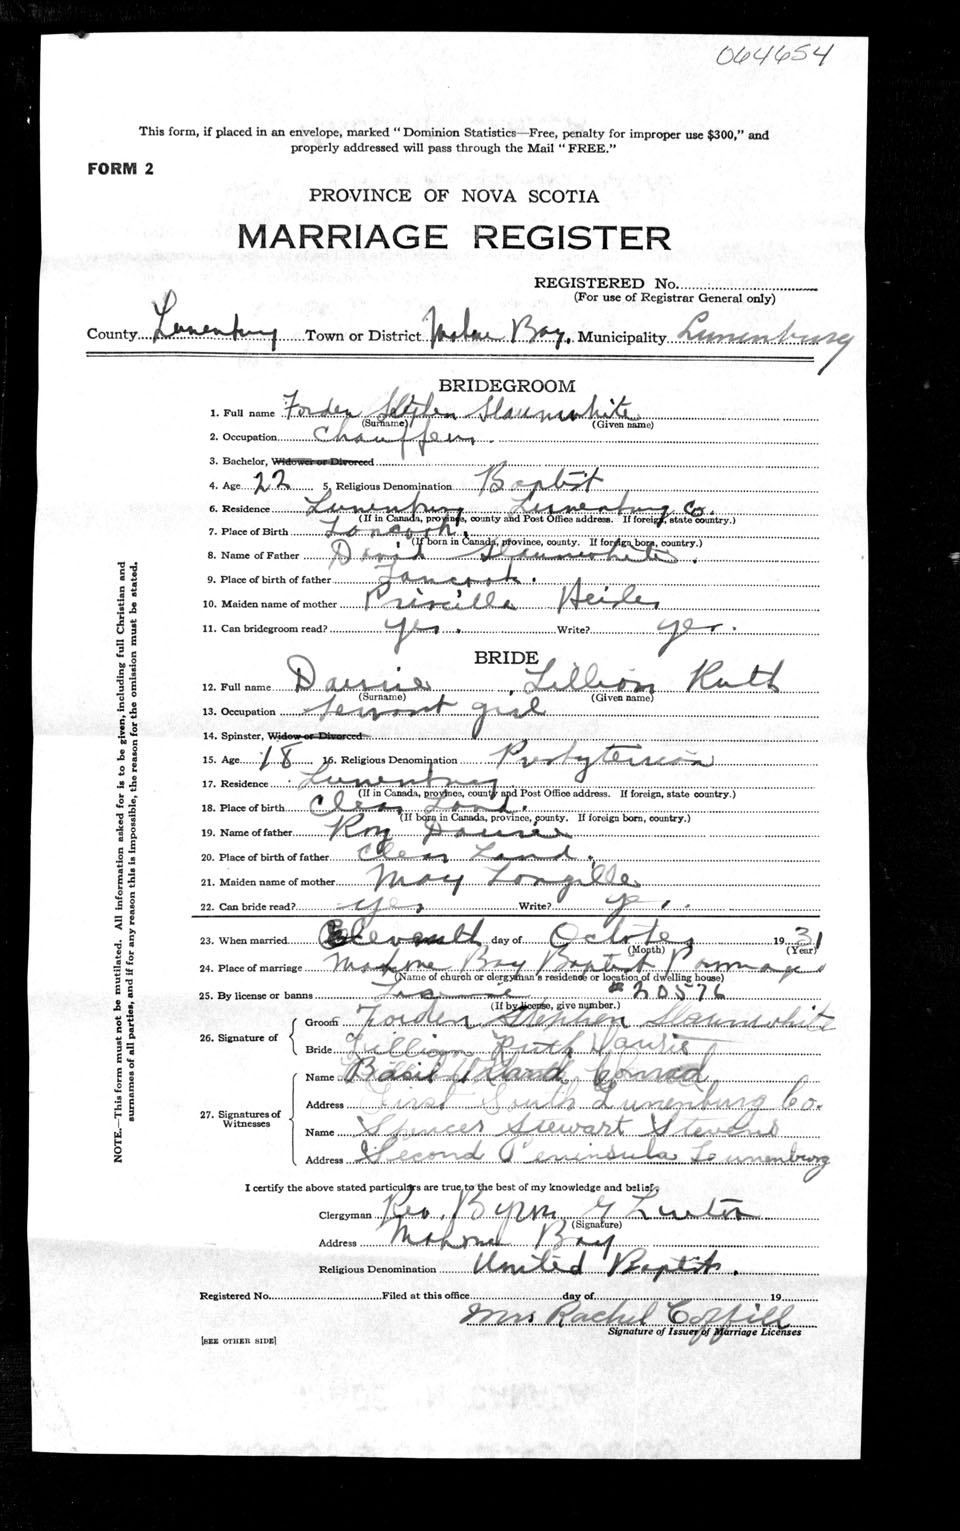 064654
This form, if placed in an envelope, marked "Dominion Statistics—Free, penalty for improper use $300," and
properly addressed will pass through the Mail "FREE."
FORM 2
PROVINCE OF NOVA SCOTIA
MARRIAGE REGISTER
REGISTERED No.
(For use of Registrar General only)
County Lunenburg Town or District Mahone Bay, Municipality Lunenburg
BRIDEGROOM
1. Full name Forden Stephen Slaunwhite
(Surname) (Given name)
2. Occupation Chauffeur.
3. Bachelor, Widower or Divorced
4. Age 22 5. Religious Denomination Baptist
6. Residence Lunenburg Lunenburg Co.
(If in Canada, province, county and Post Office address. If foreign, state country.)
7. Place of Birth Tancook.
(If born in Canada, province, county. If foreign born, country.)
8. Name of Father David Slaunwhite.
9. Place of birth of father Tancook.
10. Maiden name of mother Priscilla
11. Can bridegroom read? yes. Write? yes.
BRIDE
12. Full name Daurie, Lillian Ruth
(Surname) (Given name)
13. Occupation Servant girl
14. Spinster, Widow or Divorced
15. Age 18 16. Religious Denomination Presbyterian
17. Residence Lunenburg
(If in Canada, province, county and Post Office address. If foreign, state country.)
18. Place of birth Clear Land.
(If born in Canada, province, county. If foreign born, country.)
19. Name of father Roy Daurie
20. Place of birth of father Clear Land.
21. Maiden name of mother May Langille
22. Can bride read? yes, Write? yes.
23. When married Eleventh day of October 1931
(Month) (Year)
24. Place of marriage Mahone Bay Baptist Parsonage
(Name of church or clergyman's residence or location of dwelling house)
25. By license or banns License #20576
(If by license, give number.)
26. Signature of
Groom Forden Stephen Slaunwhite
Bride Lillian Ruth Daurie
27. Signatures of Witnesses
Name Basil Conrad
Address First South Lunenburg Co.
Name Spencer Stewart Stevens
Address Second Peninsula Lunenburg
I certify the above stated particulars are true to the best of my knowledge and belief.
Clergyman Rev. Byron G
(Signature)
Address Mahone Bay
Religious Denomination United Baptist.
Registered No. Filed at this office day of 19
Mrs Rachel Coffill
Signature of Issuer of Marriage Licenses
[SEE OTHER SIDE]
NOTE.—This form must not be mutilated. All information asked for is to be given, including full Christian and
surnames of all parties, and if for any reason this is impossible, the reason for the omission must be stated.